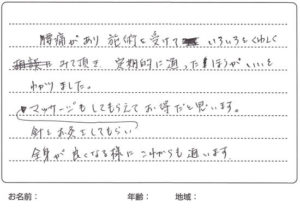 腰痛があり施術を受けていろいろとくわしく
みて頂き、定期的に通ったほうがいいと
わかりました。
マッサージもしてもらえてお得だと思います。
針とお灸をしてもらい
全身が良くなる様にこれからも通います
お名前： 年齢： 地域：